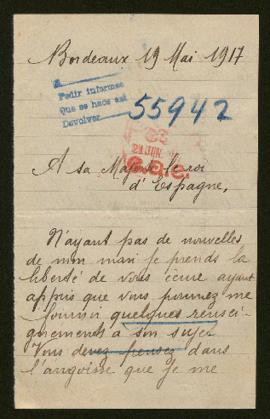 Bordeaux 19 Mai 1917
Pedir informes
que se hace así
Devolver
55942
21 JUN.
A sa Majesté le roi
d'Espagne,
N'ayant pas de nouvelles
de mon mari je prends la
liberté de vous écrire ayant
appris que vous pourriez me
fournir quelques rensei-
gnements à son sujet
Vous devez pensez dans
l'angoisse que je me